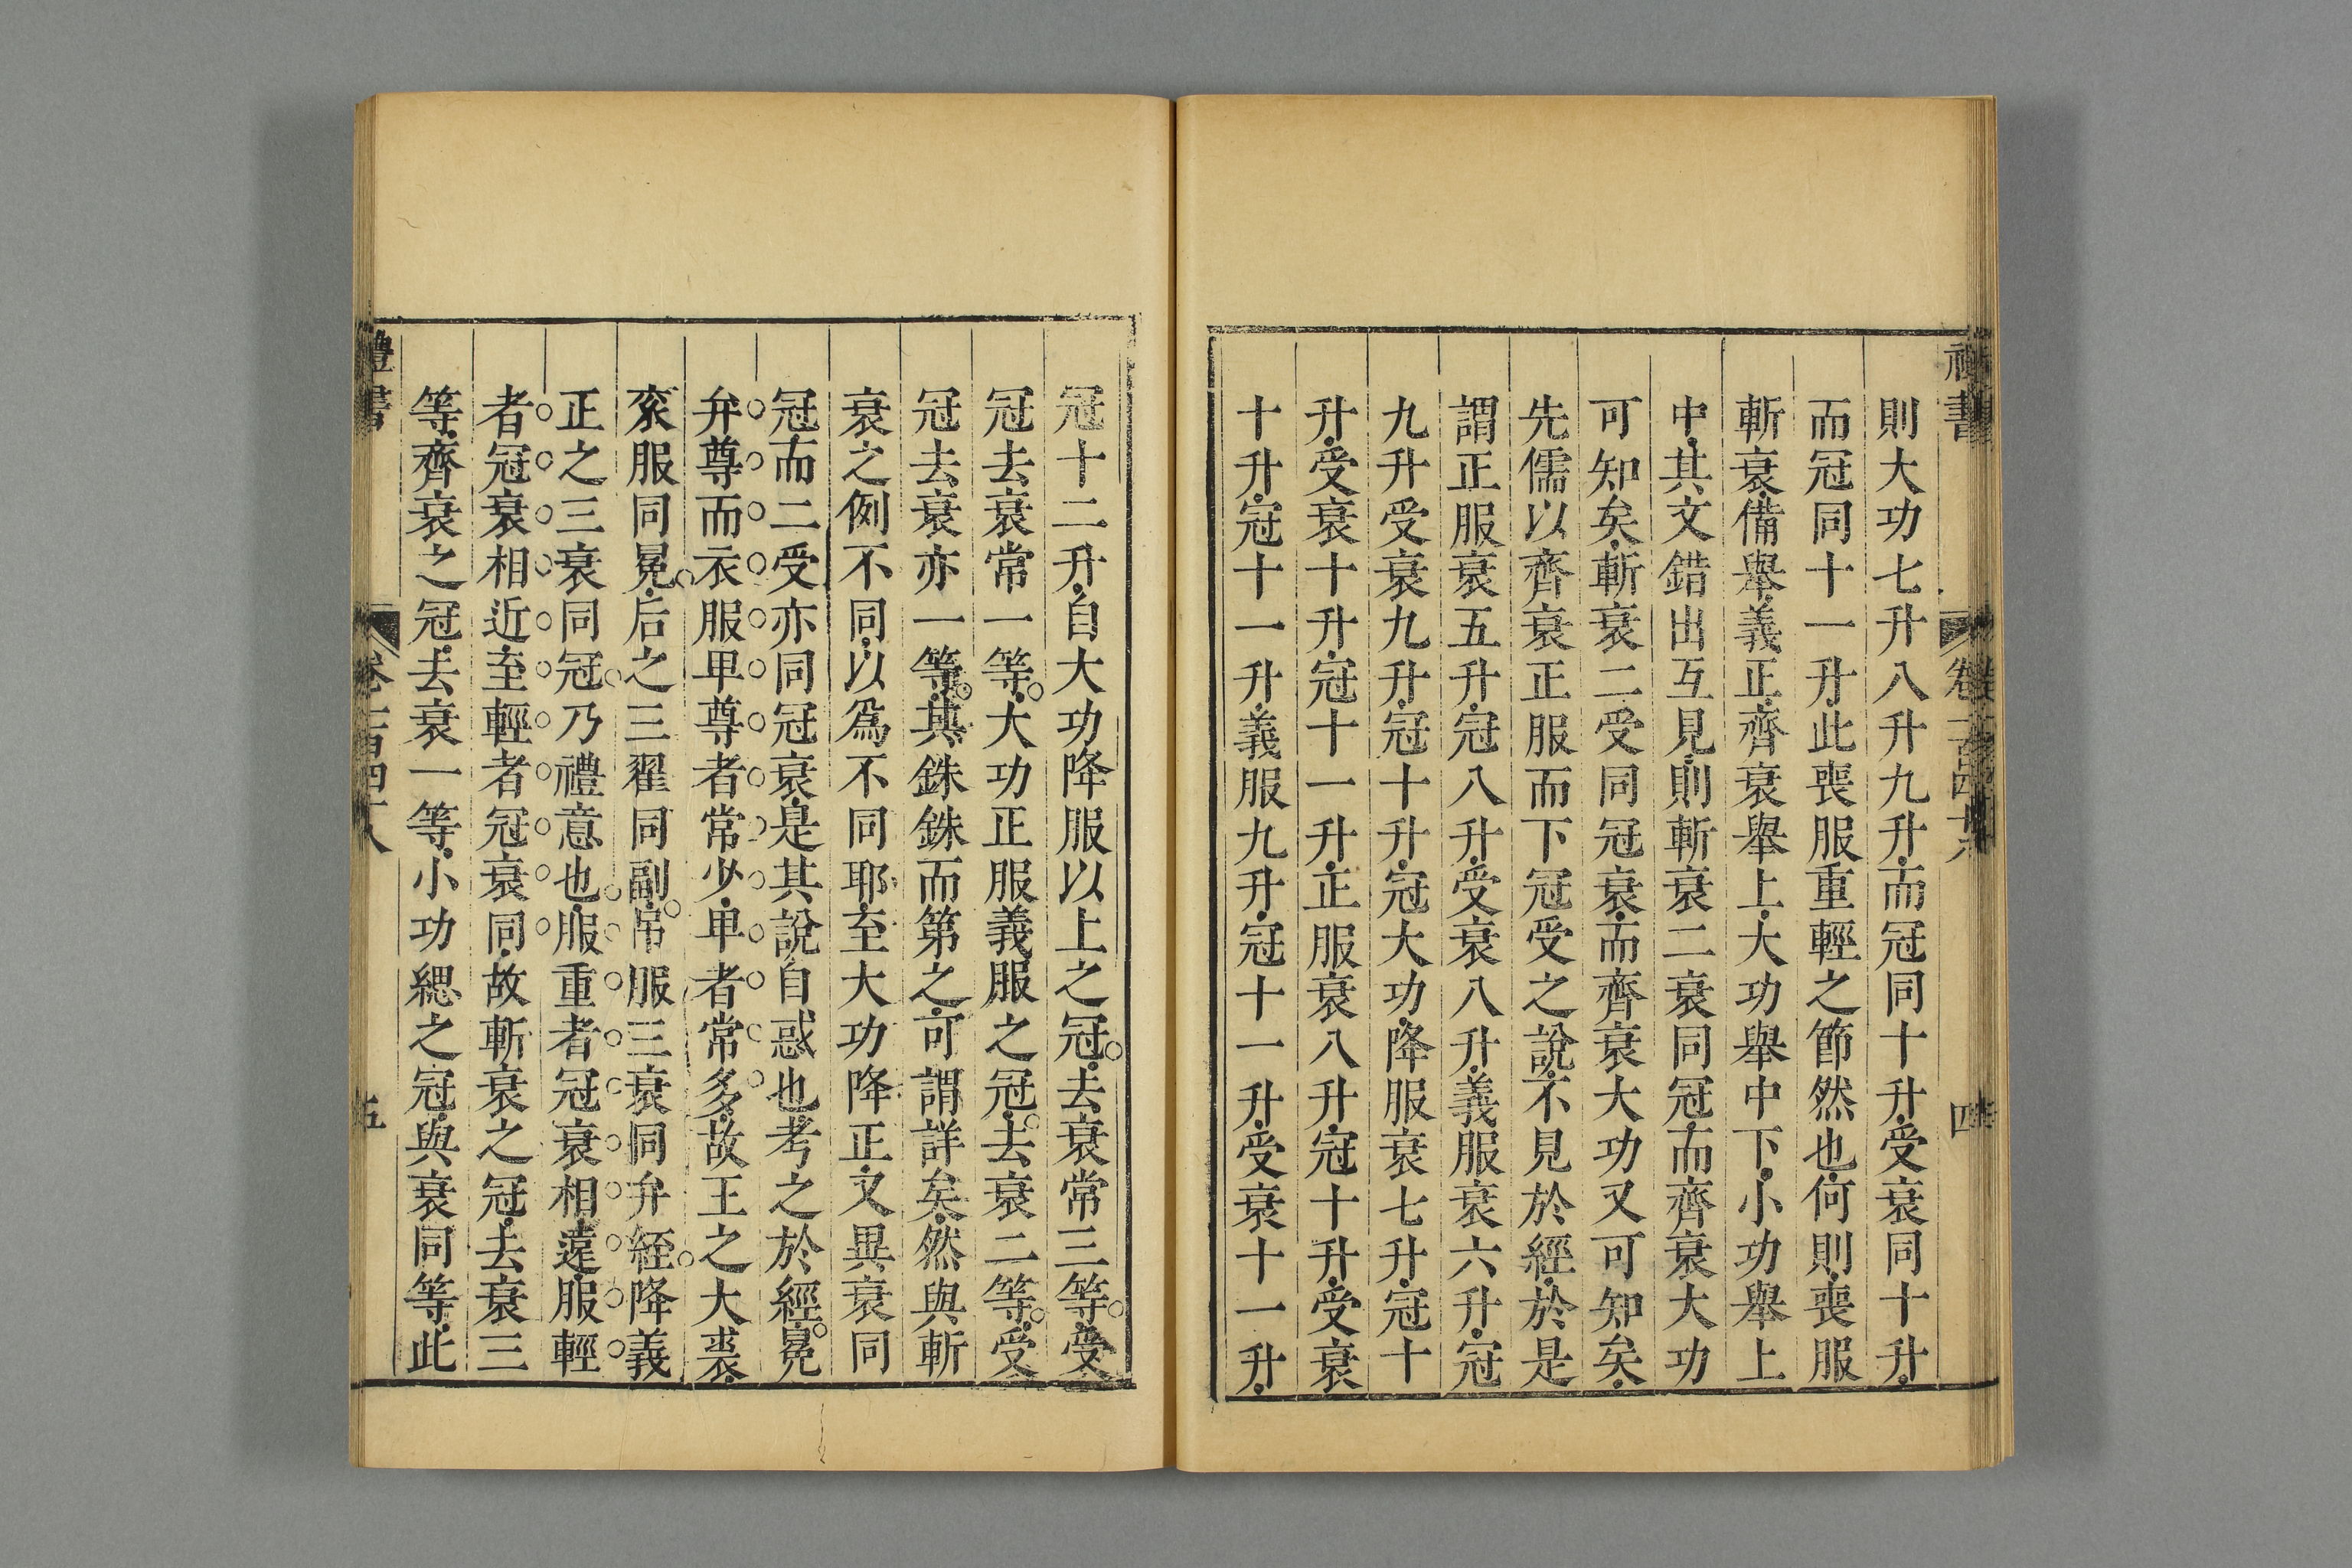 則大功七升八升九升而冠同十升受衰同十升
而冠同十一升此喪服重輕之節然也何則喪服
斬衰備舉義正齊衰舉上大功舉中下小功舉上
中其文錯出互見則斬衰二衰同冠而齊衰大功
可知矣斬衰二受同冠衰而齊衰大功又可知矣
先儒以齊衰正服而下冠受之說不見於經於是
謂正服衰五升冠八升受衰八升義服衰六升冠
九升受衰九升冠十升冠大功降服衰七升冠十
升受衰十升冠十一升正服衰八升冠十升受衰
十升冠十一升義服九升冠十一升受衰十一升
冠十二升自大功降服以上之冠去衰常三等受
冠去衰常一等大功正服義服之冠去衰二等受
冠去衰亦一等其銖銖而第之可謂詳矣然與斬
衰之例不同以為不同耶至大功降正文異衰同
冠而二受亦同冠衰是其說自惑也考之於經冕
弁尊而衣服卑尊者常少卑者常多故王之大裘
衮服同冕后之三翟同副弔服三衰同弁絰降義
正之三衰同冠乃禮意也服重者冠衰相遠服輕
者冠衰相近至輕者冠衰同故斬衰之冠去衰三
等齊衰之冠去衰一等小功緦之冠與衰同等此
禮書
五